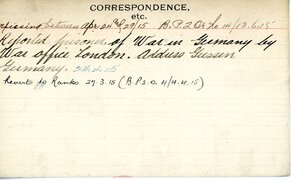 CORRESPONDENCE,
etc.
missing between Apr 24th & 29/15 B.P.2.O. No 14/13.5.15
Reported prisoner of War in Germany by
War office London. Address Giessen
Germany. 24.4.15
Reverts to Ranks 29.3.15 (B.P.2.O. 11/4.4.15)